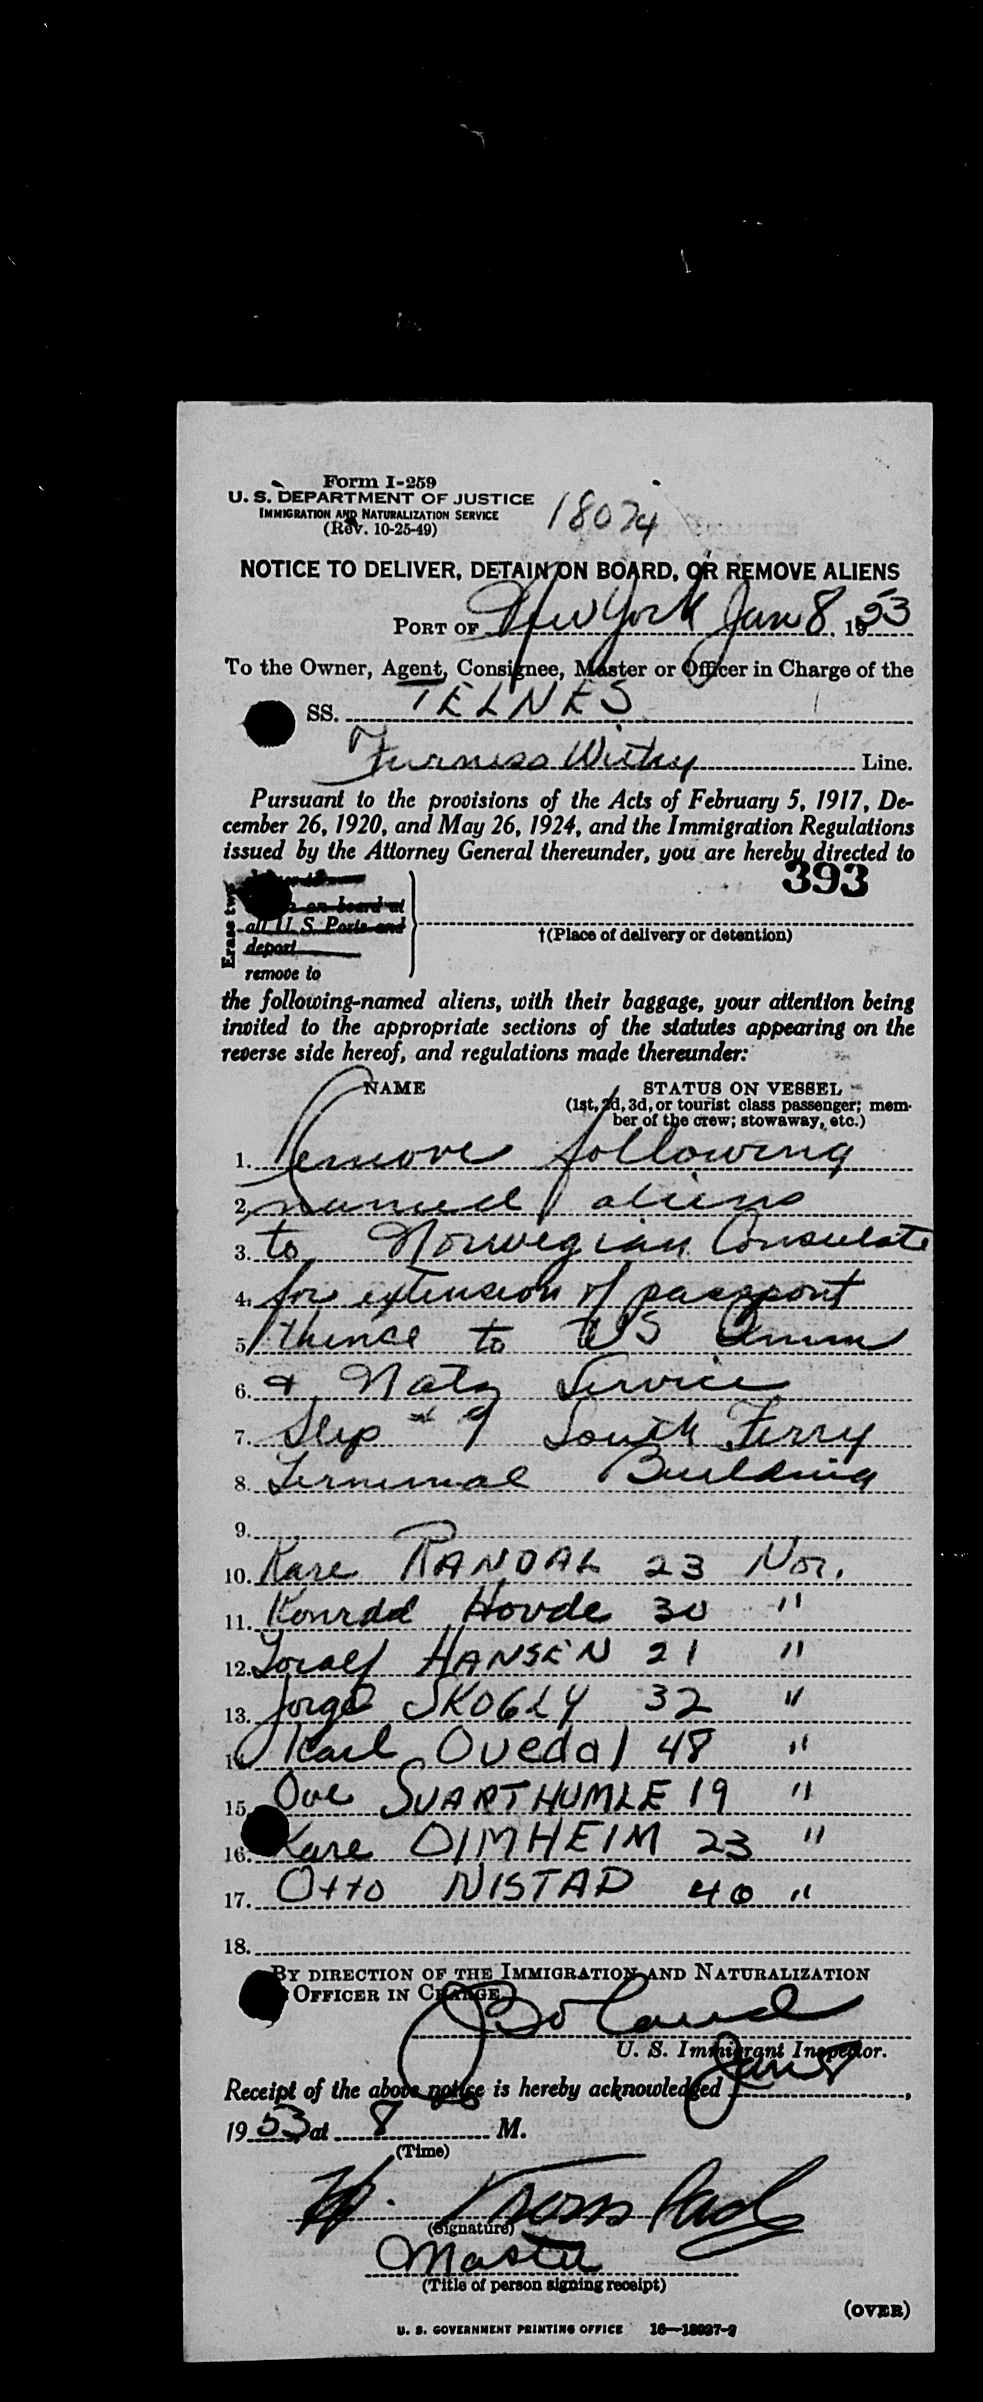 Form I-259
U. S. DEPARTMENT OF JUSTICE
IMMIGRATION AND NATURALIZATION SERVICE
(Rev. 10-25-49)
NOTICE TO DELIVER, DETAIN ON BOARD, OR REMOVE ALIENS
PORT OF New York Jan 8, 1953
To the Owner, Agent, Consignee, Master or Officer in Charge of the
SS. TELNES
Furness Withy Line.
Pursuant to the provisions of the Acts of February 5, 1917, De-
cember 26, 1920, and May 26, 1924, and the Immigration Regulations
issued by the Attorney General thereunder, you are hereby directed to
393
Erase two
on board at
all U. S. Ports and
deport
†(Place of delivery or detention)
remove to
the following-named aliens, with their baggage, your attention being
invited to the appropriate sections of the statutes appearing on the
reverse side hereof, and regulations made thereunder:
NAME STATUS ON VESSEL
(1st, 2d, 3d, or tourist class passenger; mem-
ber of the crew; stowaway, etc.)
1. Remove following
2. named aliens
3. to Norwegian Consulate
4. for extension of passport
5. thence to US Imm
6. & Natz Service
7. Slip # 9 South Ferry
8. Terminal Building
9.
10. Kare RANDAL 23 Nor.
11. Konrad Hovde 30 "
12. Toralf HANSEN 21 "
13. SKOGLY 32 "
14. Karl Ovedal 48 "
15. Ove SVARTHUMLE 19 "
16. Kare DIMHEIM 23 "
17. Otto NISTAD 40 "
18.
BY DIRECTION OF THE IMMIGRATION AND NATURALIZATION
OFFICER IN CHARGE
Boland
U. S. Immigrant Inspector.
Receipt of the above notice is hereby acknowledged Jan 8,
1953 at 8 M.
(Time)
(Signature)
Master
(Title of person signing receipt)
(OVER)
U. S. GOVERNMENT PRINTING OFFICE